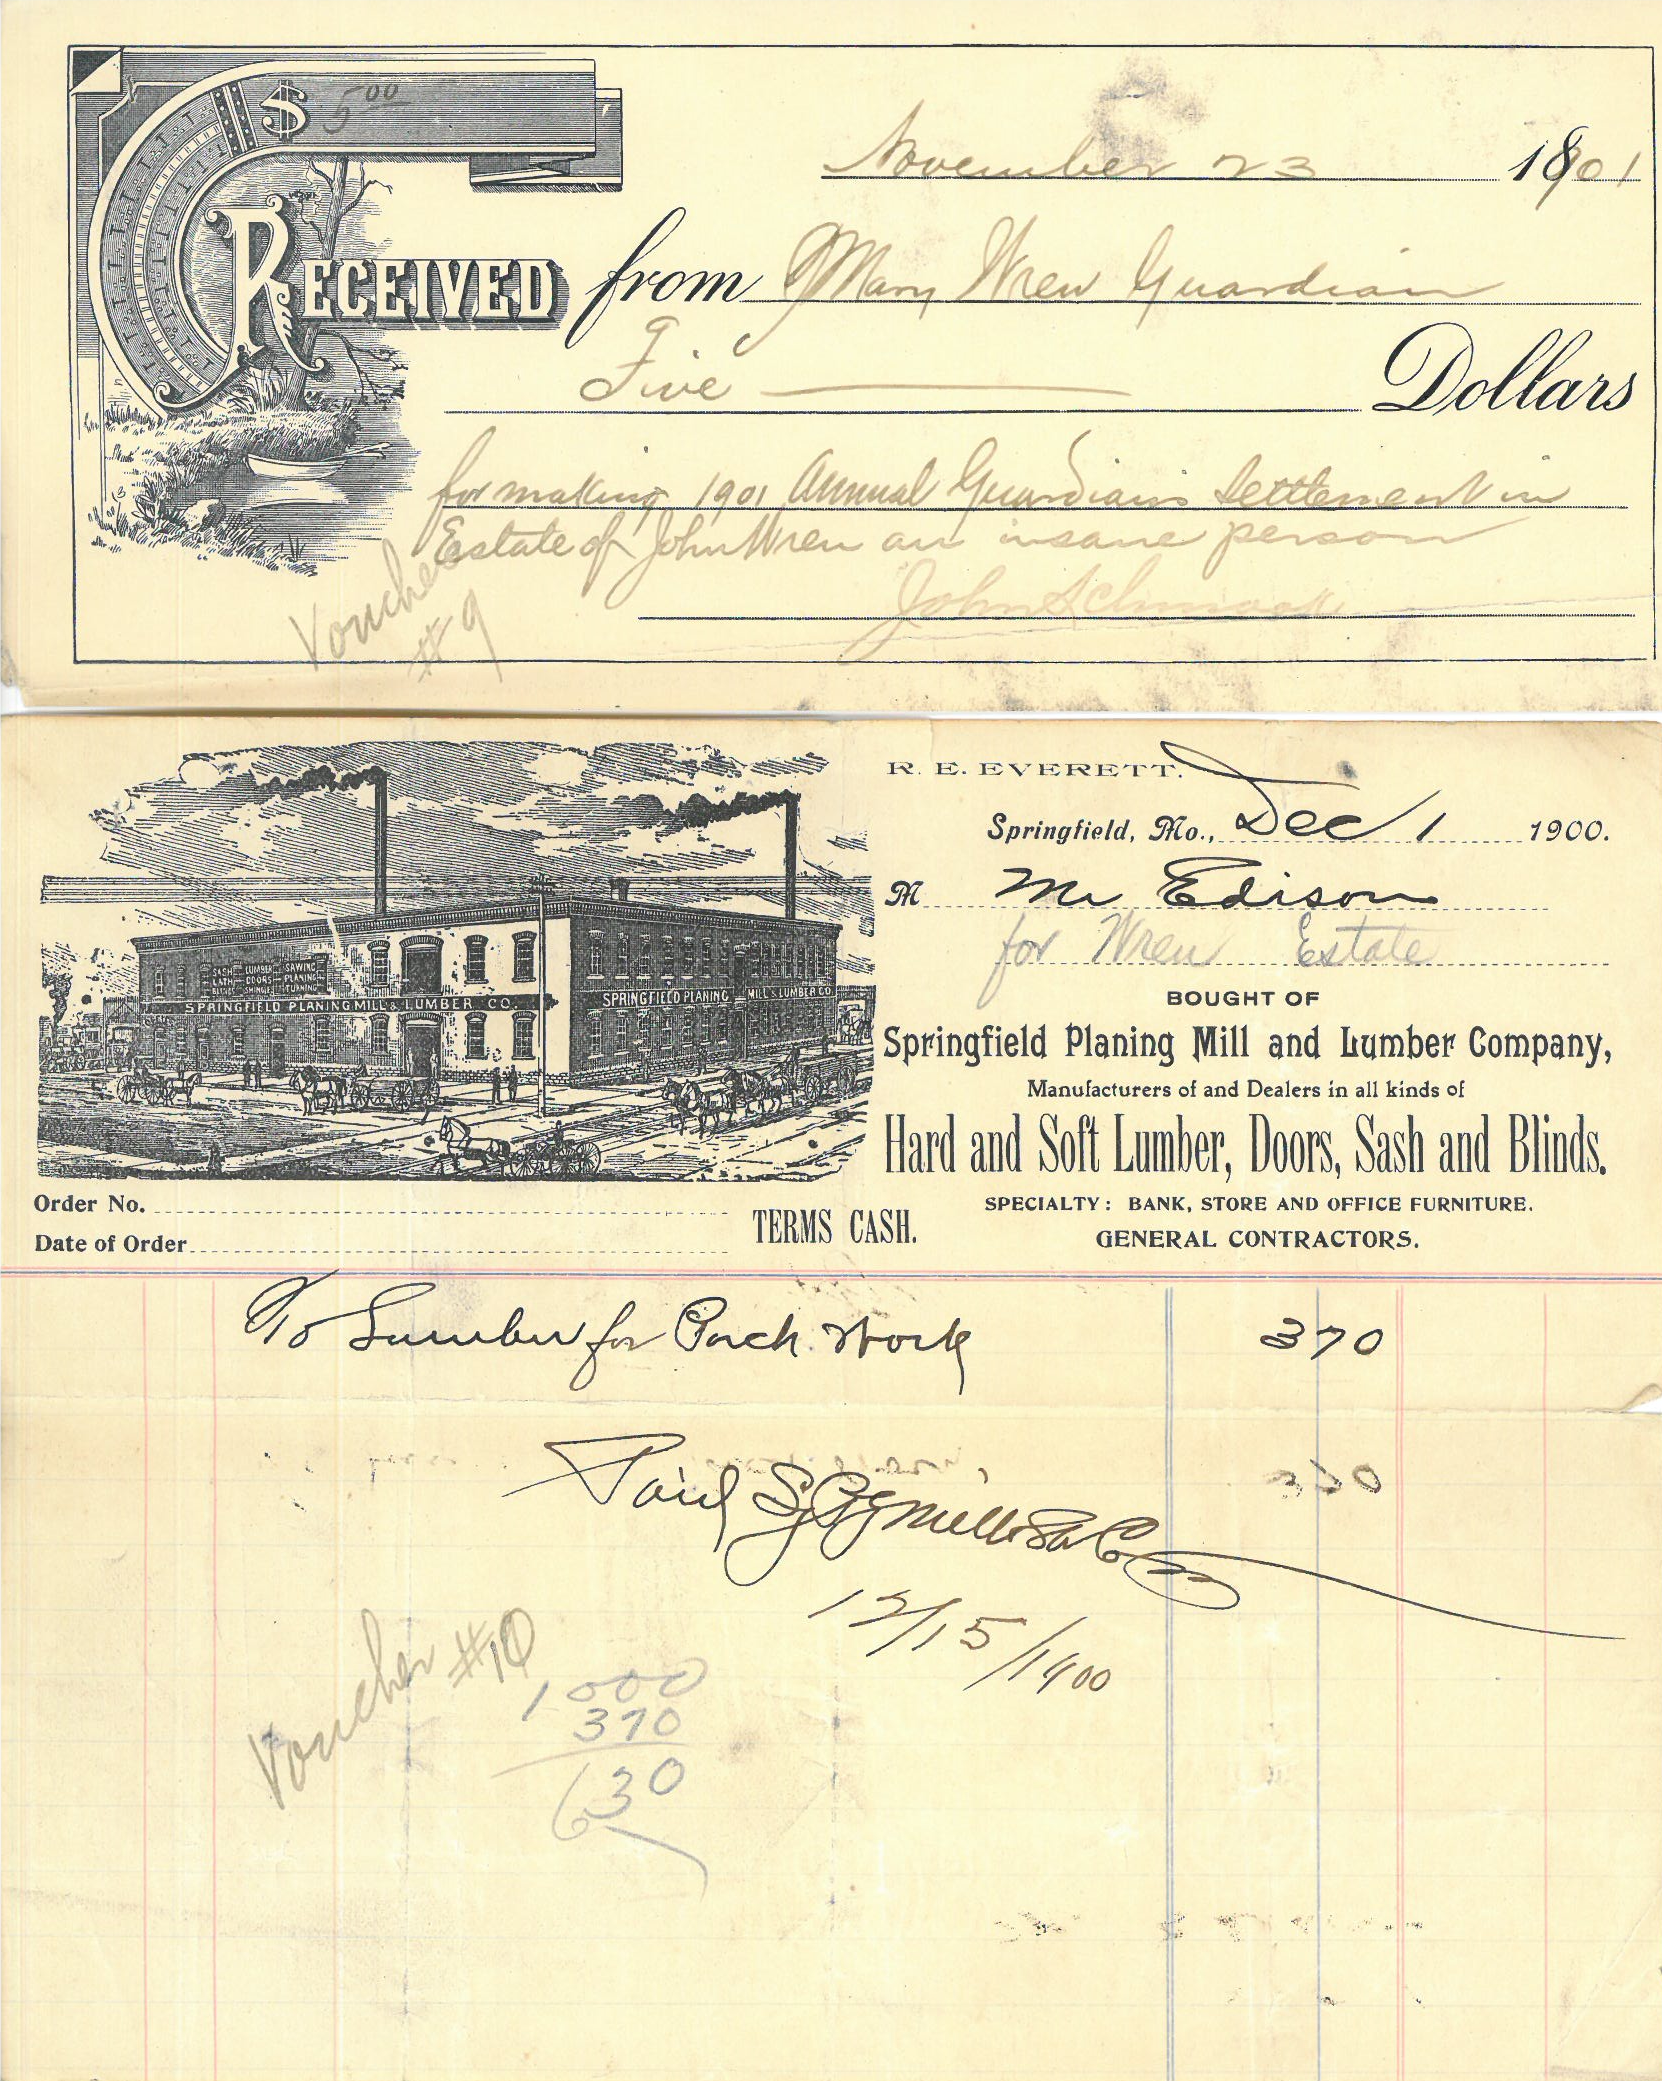 $ 5 00
November 23 1901
RECEIVED from Mary Wren Guardian
Five Dollars
for making 1901 Annual Guardians Settlement in
Estate of John Wren an insane person
John Schmook
Voucher
#9
R. E. EVERETT.
Springfield, Mo., Dec 1 1900.
M Mr Edison
for Wren Estate
BOUGHT OF
Springfield Planing Mill and Lumber Company,
Manufacturers of and Dealers in all kinds of
Hard and Soft Lumber, Doors, Sash and Blinds.
SPECIALTY: BANK, STORE AND OFFICE FURNITURE.
GENERAL CONTRACTORS.
SASH LUMBER SAWING
LATH DOORS PLANING
BLINDS SHINGLE TURNING
SPRINGFIELD PLANING MILL & LUMBER CO.
SPRINGFIELD PLANING MILL & LUMBER CO.
Order No.
Date of Order
TERMS CASH.
To Lumber for Porch Work 370
Paid
12/15/1900
Voucher #10
1000
370
630